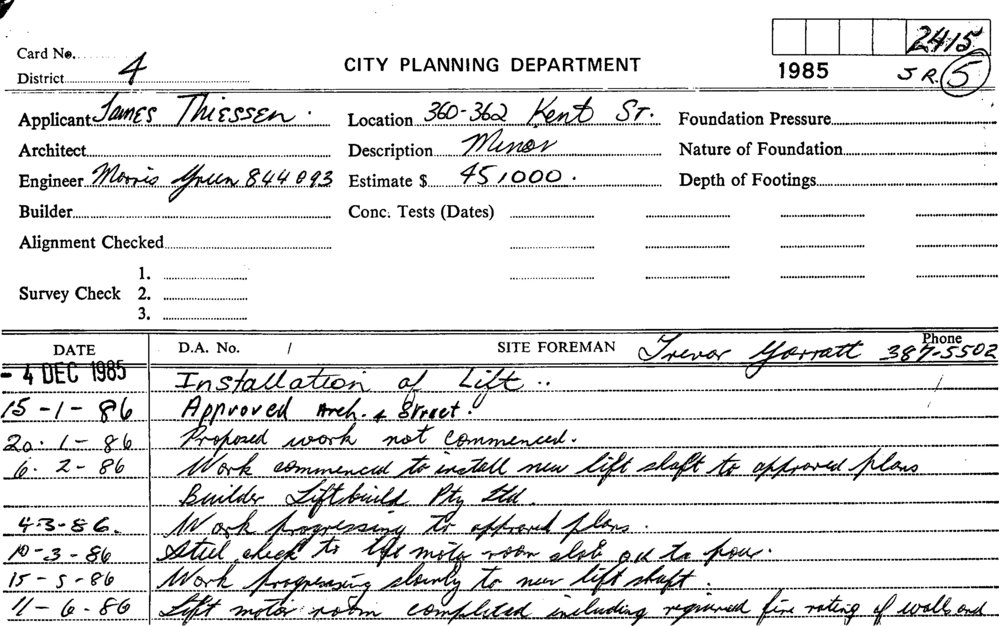 2415
Card No.
District 4
CITY PLANNING DEPARTMENT
1985 J R. 5
Applicant James Thiessen. Location 360-362 Kent St. Foundation Pressure
Architect Description Minor Nature of Foundation
Engineer Morris Green 844093 Estimate $ 45,000. Depth of Footings
Builder Conc. Tests (Dates)
Alignment Checked
1.
Survey Check 2.
3.
DATE D.A. No. / SITE FOREMAN Trevor Garratt Phone 387-5502
- 4 DEC 1985 Installation of Lift ..
15-1-86 Approved Arch. & Struct.
20.1-86 Proposed work not commenced.
6.2-86 Work commenced to install new lift shaft to approved plans
Builder Liftbuild Pty Ltd.
4-3-86. Work progressing to approved plans.
10-3-86 Steel check to lift motor room slab o.k to pour.
15-5-86 Work progressing slowly to new lift shaft.
11-6-86 Lift motor room completed including required fire rating of walls and